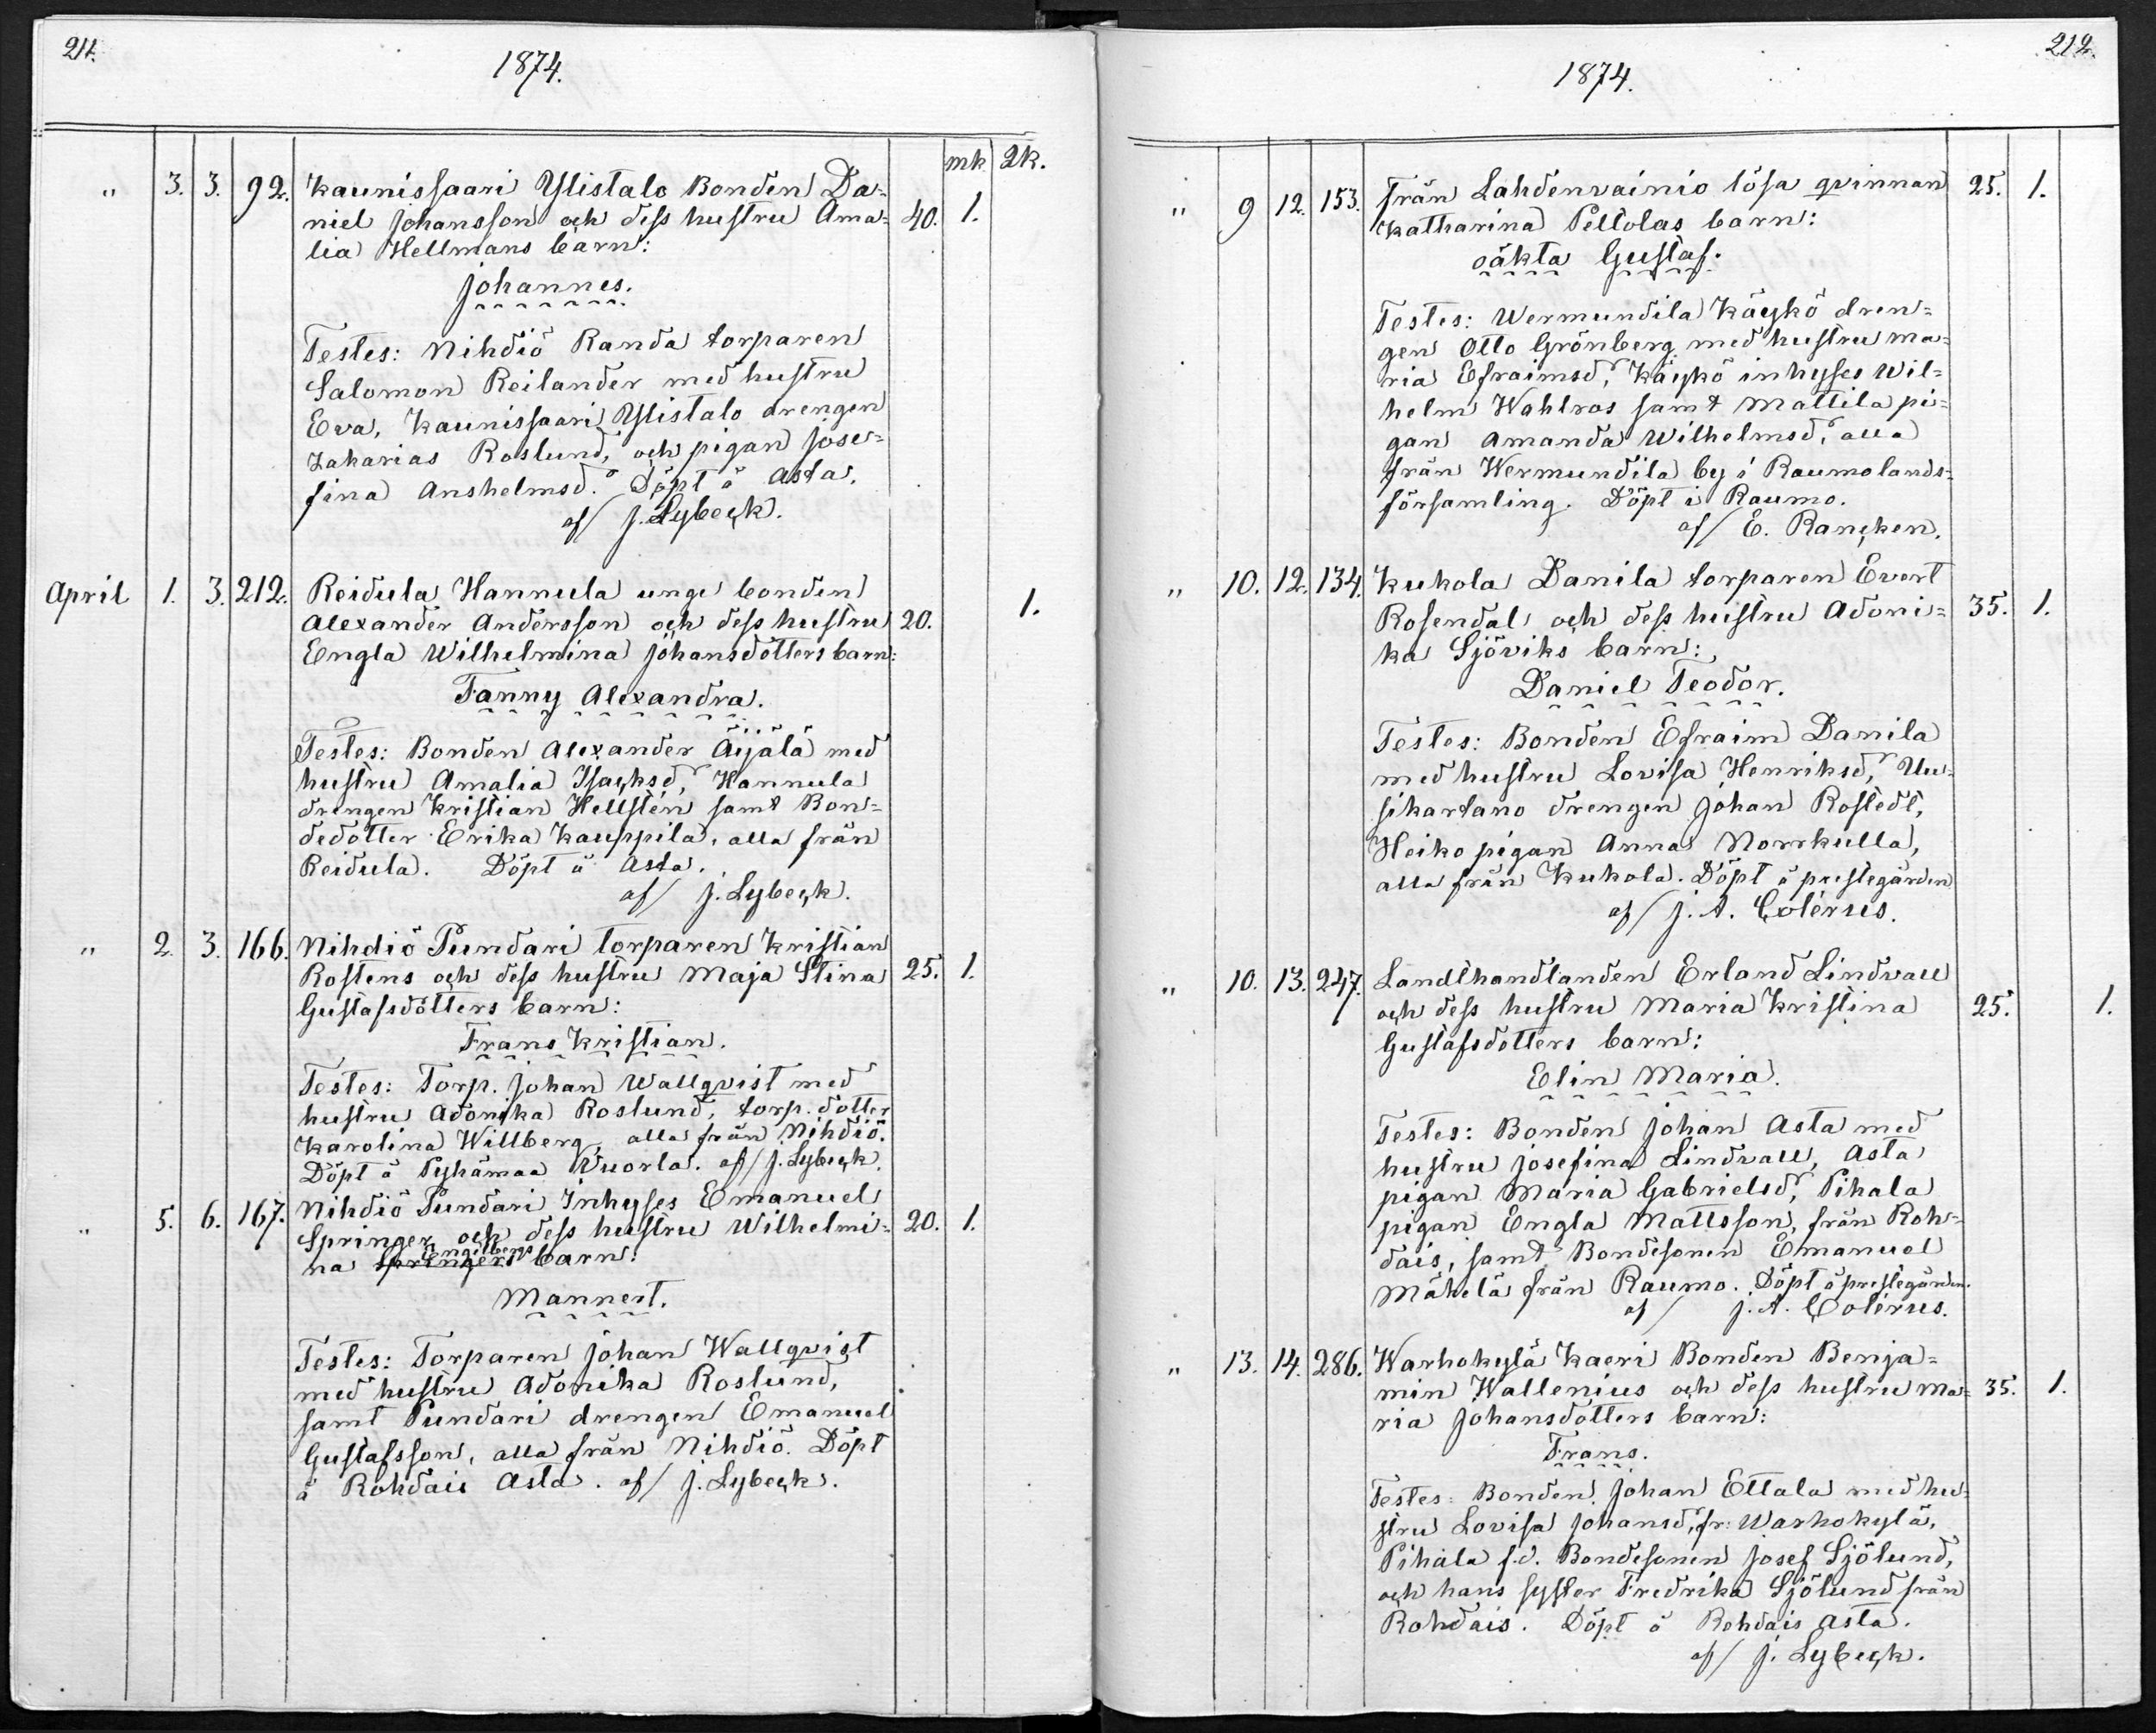 211.
1874.
mk 2k.
" 3. 3. 92. Kaunissaari Ylistalo Bonden Da=
niel Johansson och dess hustru Ama= 40. 1.
lia Hellmans barn:
Johannes.
Testes: Nihdiö Randa torparen
Salomon Reilander med hustru
Eva, Kaunissaari Ylistalo drengen
Zakarias Roslund, och pigan Jose=
fina Anshelmsd. Döpt å Asta.
af/ J. Lybeck.
April 1. 3. 212. Reidula Hannula unge bonden 1.
Alexander Andersson och dess hustru 20.
Engla Wilhelmina Johansdotters barn:
Fanny Alexandra.
Testes: Bonden Alexander Äijälä med
hustru Amalia Isacksd, Hannula
drengen Kristian Hellstén samt Bon=
dedotter Erika Kauppila, alla från
Reidula. Döpt å Asta.
af/ J. Lybeck.
" 2. 3. 166. Nihdiö Pundari torparen Kristian
Rostens och dess hustru Maja Stina 25. 1.
Gustafsdotters barn:
Frans Kristian.
Testes: Torp. Johan Wallqvist med
hustru Adonika Roslund, torp. dotter
Karolina Willberg, alla från Nihdiö.
Döpt å Pyhämaa Vuorla. af/ J. Lybeck.
" 5. 6. 167. Nihdiö Pundari Inhyses Emanuel
Springer och dess hustru Wilhelmi= 20. 1.
Engelbergs
na Springers barn:
Mannert.
Testes: Torparen Johan Wallqvist
med hustru Adonika Roslund,
samt Pundari drengen Emanuel
Gustafsson, alla från Nihdiö. Döpt
å Rohdais Asta. af/ J. Lybeck.
212.
1874.
" 9 12. 153. Från Lahdenvainio lösa qvinnan 25. 1.
Katharina Pellolas barn:
oäkta Gustaf.
Testes: Wermundila Käykö dren=
gen Otto Grönberg med hustru Ma=
ria Efraimsd, Käykö inhyses Wil=
helm Wahlros samt Mattila pi=
gan Amanda Wilhelmsd, alla
från Wermundila by i Raumo lands=
församling. Döpt i Raumo.
af/ E. Rancken.
" 10. 12. 134. Kukola Danila torparen Evert
Rosendal och dess hustru Adoni= 35. 1.
ka Sjöviks barn:
Daniel Teodor.
Testes: Bonden Efraim Danila
med hustru Lovisa Henriksd, Uu=
sikartano drengen Johan Rostedt,
Heiko pigan Anna Norrkulla,
alla från Kukola. Döpt å prestegården
af/ J. A. Colérus.
" 10. 13. 247. Landthandlanden Erland Lindvall
och dess hustru Maria Kristina 25. 1.
Gustafsdotters barn:
Elin Maria.
Testes: Bonden Johan Asta med
hustru Josefina Lindvall, Asta
pigan Maria Gabrielsd, Pihala
pigan Engla Mattsson, från Roh=
dais, samt Bondesonen Emanuel
Mäkelä från Raumo. Döpt å prestegården.
af/ J. A. Colérus.
" 13. 14. 286. Warhokylä Kaeri Bonden Benja=
min Wallenius och dess hustru Ma= 35. 1.
ria Johansdotters barn:
Frans.
Testes: Bonden Johan Ettala med hu=
stru Lovisa Johansd, fr: Warhokylä,
Pihala f.d. Bondesonen Josef Sjölund,
och hans syster Fredrika Sjölund från
Rohdais. Döpt å Rohdais Asta.
af/ J. Lybeck.